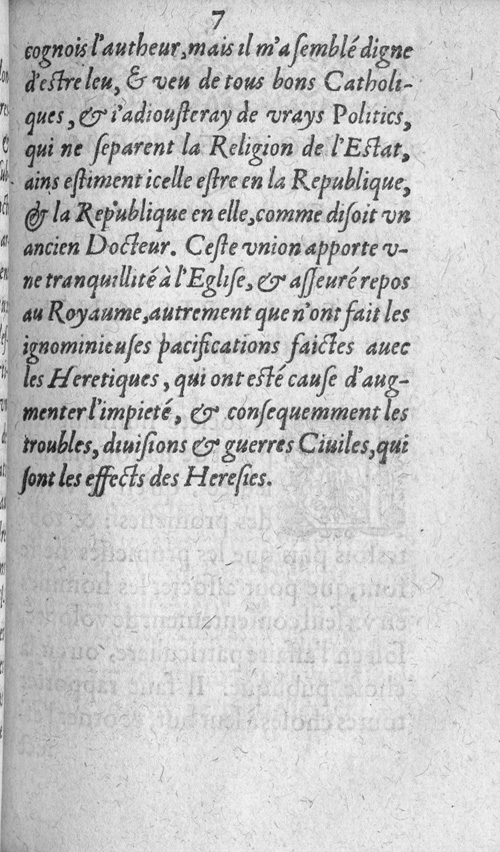 7
cognois l'autheur, mais il m'a ſemblé digne
d'eſtre leu, & veu de tous bons Catholi-
ques, & i'adiouſteray de vrays Politics,
qui ne ſeparent la Religion de l'Eſtat,
ains eſtiment icelle eſtre en la Republique,
& la Republique en elle, comme diſoit vn
ancien Docteur. Ceſte vnion apporte v-
ne tranquillité à l'Egliſe, & aſſeuré repos
au Royaume, autrement que n'ont fait les
ignominieuſes pacifications faictes auec
les Heretiques, qui ont eſté cauſe d'aug-
menter l'impieté, & conſequemment les
troubles, diuiſions & guerres Ciuiles, qui
ſont les effects des Hereſies.